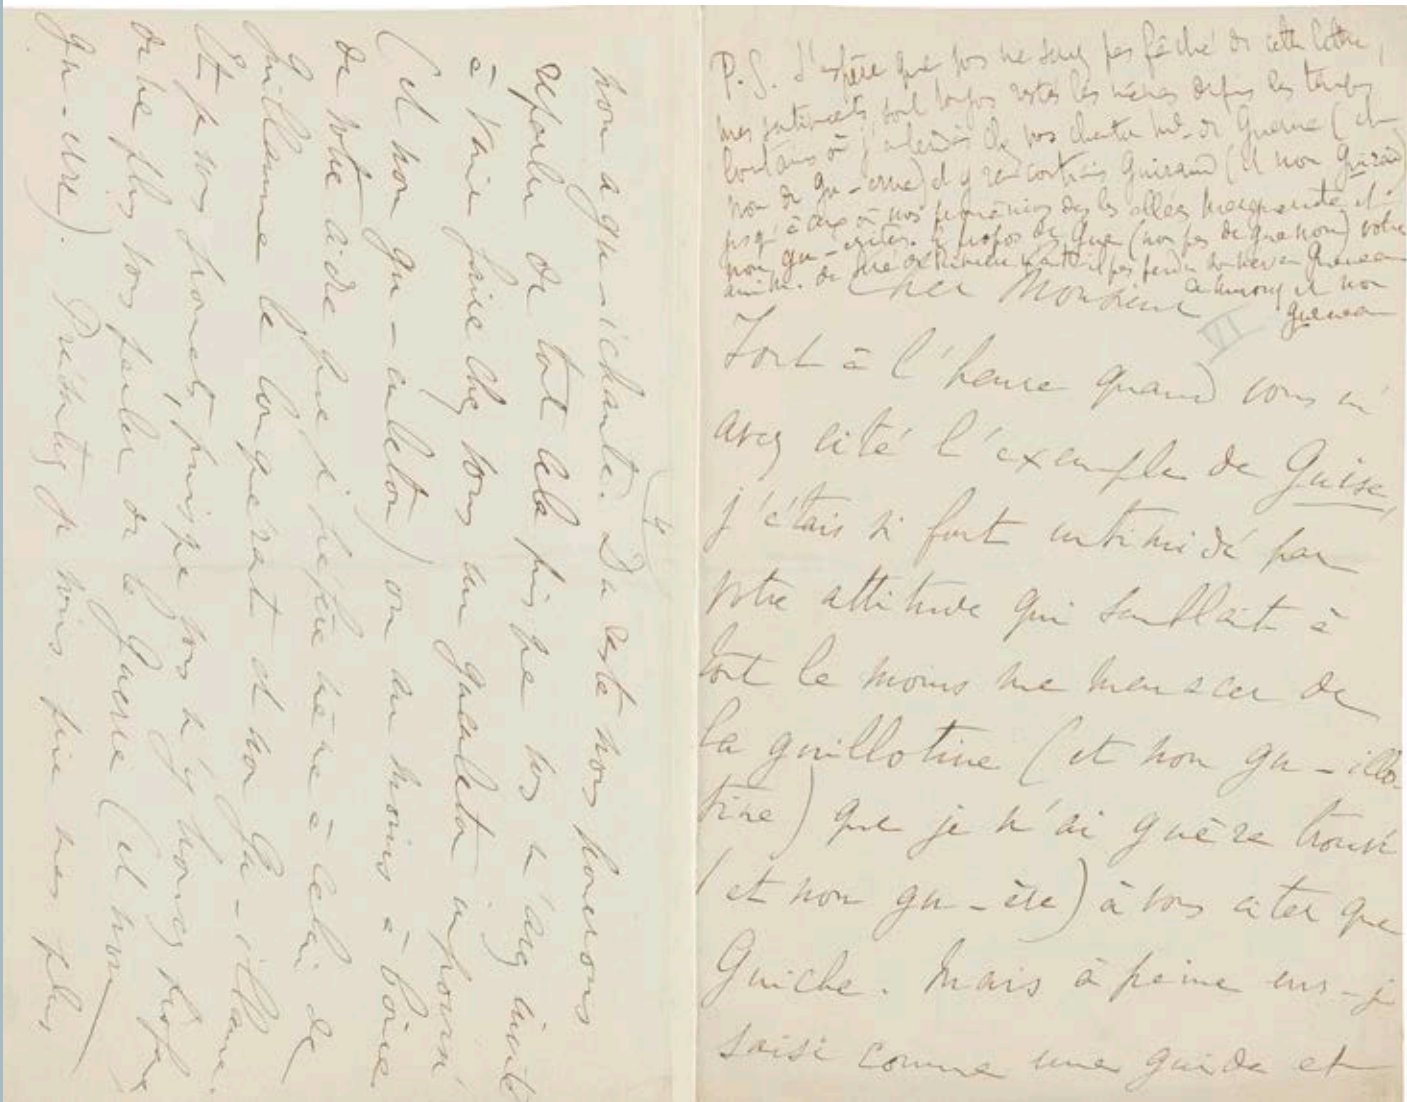 P.S. J'espère que vos ne serez pas fâché de cette lettre,
mes sentiments sont toujos restés les mêmes depuis les temps
lointains où j'entendais chez vos chanter Me de Guerne (et
non de Gu-erne) et y rencontrais Guiraud (et non Guiraud)
jusqu'à ceux où nos promenions ds les allées Marguerite et
non gu-erites. A propos de Gue (non pas de guenon) votre
ami M. de n'a-t-il pas perdu son neveu Gueneau
de Mussy et non
Gueneau
Cher Monsieur
VII
Tout à l'heure quand vous m'
avez cité l'exemple de Guise,
j'étais si fort intimidé par
votre attitude qui semblait à
tout le moins me menacer de
la guillotine (et non gu-illo-
tine) que je n'ai guère trouvé
(et non gu-ère) à vous citer que
Guiche. Mais à peine eus-je
saisi comme une guide et
4
non agu-ichante. Du reste nous pouvons
reparler de tout cela puisque vos m'avez invité
à venir faire chez vous un gueuleton improvisé
(et non gu-euleton) ou au moins à boire
de votre cidre que je préfère même à celui de
Guillaume le Conquérant et non Gu-illaume.
Et je vous promets, puisque vos
de ne plus vous parler de la Guerre (et non
Gu-erre). je vous prie mes plus